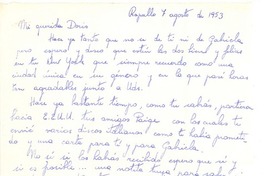 Rapallo 7 agosto de 1953
Mi querida Doris
Hace ya tanto que no se de ti ni de Gabriela
pero espero y deseo que estén las dos bien y felices
en tu New York que siempre recuerdo como una
ciudad única en su género y en la que pasé horas
tan agradables junto a Uds.
Hace ya bastante tiempo, como tu sabrás, partieron
hacia E.E.U.U. tus amigos Paige con los cuales te
envié varios discos italianos como te había prometido
y una carta para ti y para Gabriela.
No sé si los habrás recibido espero que sí y
si es posible... una notita tuya para saber